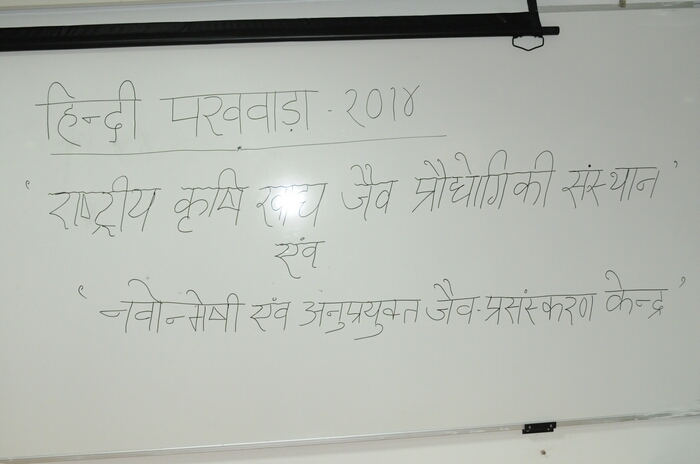 हिन्दी पखवाड़ा - २०१४
' राष्ट्रीय कृषि खाद्य जैव प्रौद्योगिकी संस्थान '
एवं
' नवोन्मेषी एवं अनुप्रयुक्त जैव-प्रसंस्करण केन्द्र '